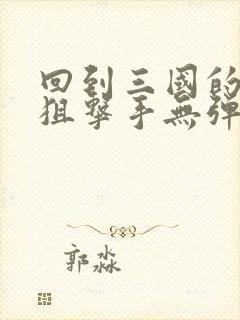 回到三國的
狙擊手無彈
郭淼